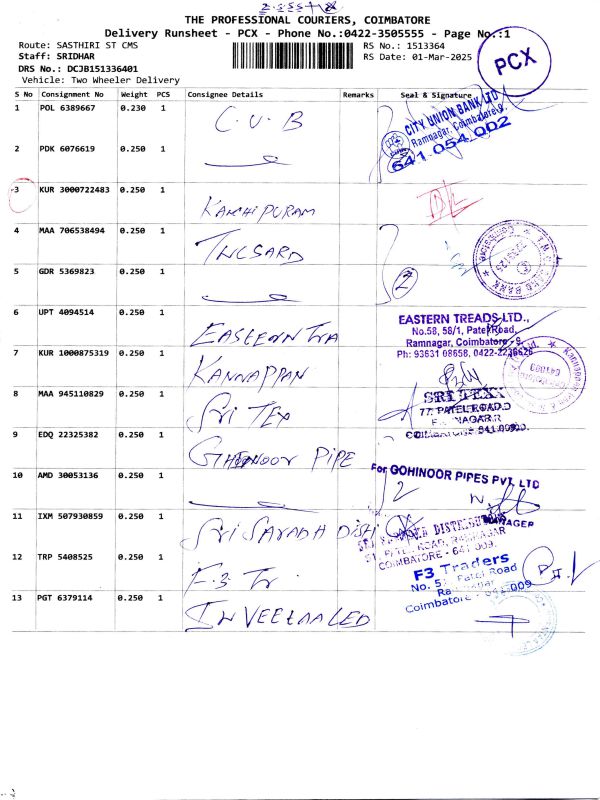 THE PROFESSIONAL COURIERS, COIMBATORE
Delivery Runsheet - PCX - Phone No.:0422-3505555 - Page No.:1
Route: SASTHIRI ST CMS
RS No.: 1513364
Staff: SRIDHAR
RS Date: 01-Mar-2025
PCX
DRS No.: DCJB151336401
Vehicle: Two Wheeler Delivery
S No Consignment No Weight PCS Consignee Details Remarks Seal & Signature
1 POL 6389667 0.230 1 C.U.B
CITY UNION BANK LTD
Ramnagar, Coimbatore-9.
641 054 002
2 PDK 6076619 0.250 1
3 KUR 3000722483 0.250 1 KANCHIPURAM
4 MAA 706538494 0.250 1 TNCSARD
5 GDR 5369823 0.250 1
2
6 UPT 4094514 0.250 1 EASTEERN TRA
EASTERN TREADS LTD.,
No.58, 58/1, Patel Road,
Ramnagar, Coimbatore - 9.
Ph: 93631 08658, 0422-2236626
7 KUR 1000875319 0.250 1 KANNAPPAN
8 MAA 945110829 0.250 1 SRI TEX
SRI TEXX
77, PATEL ROAD
COIMBATORE 641 009.
9 EDQ 22325382 0.250 1 GHINOOR PIPE
10 AMD 30053136 0.250 1
For GOHINOOR PIPES PVT. LTD
MANAGER
11 IXM 507930859 0.250 1 SRI SARADH DISH
PATEL ROAD, RAMNAGAR
COIMBATORE - 641 009.
12 TRP 5408525 0.250 1 F-3 Tr
F3 Traders
No. 5 Patel Road
Coimbatore - 641 009
13 PGT 6379114 0.250 1